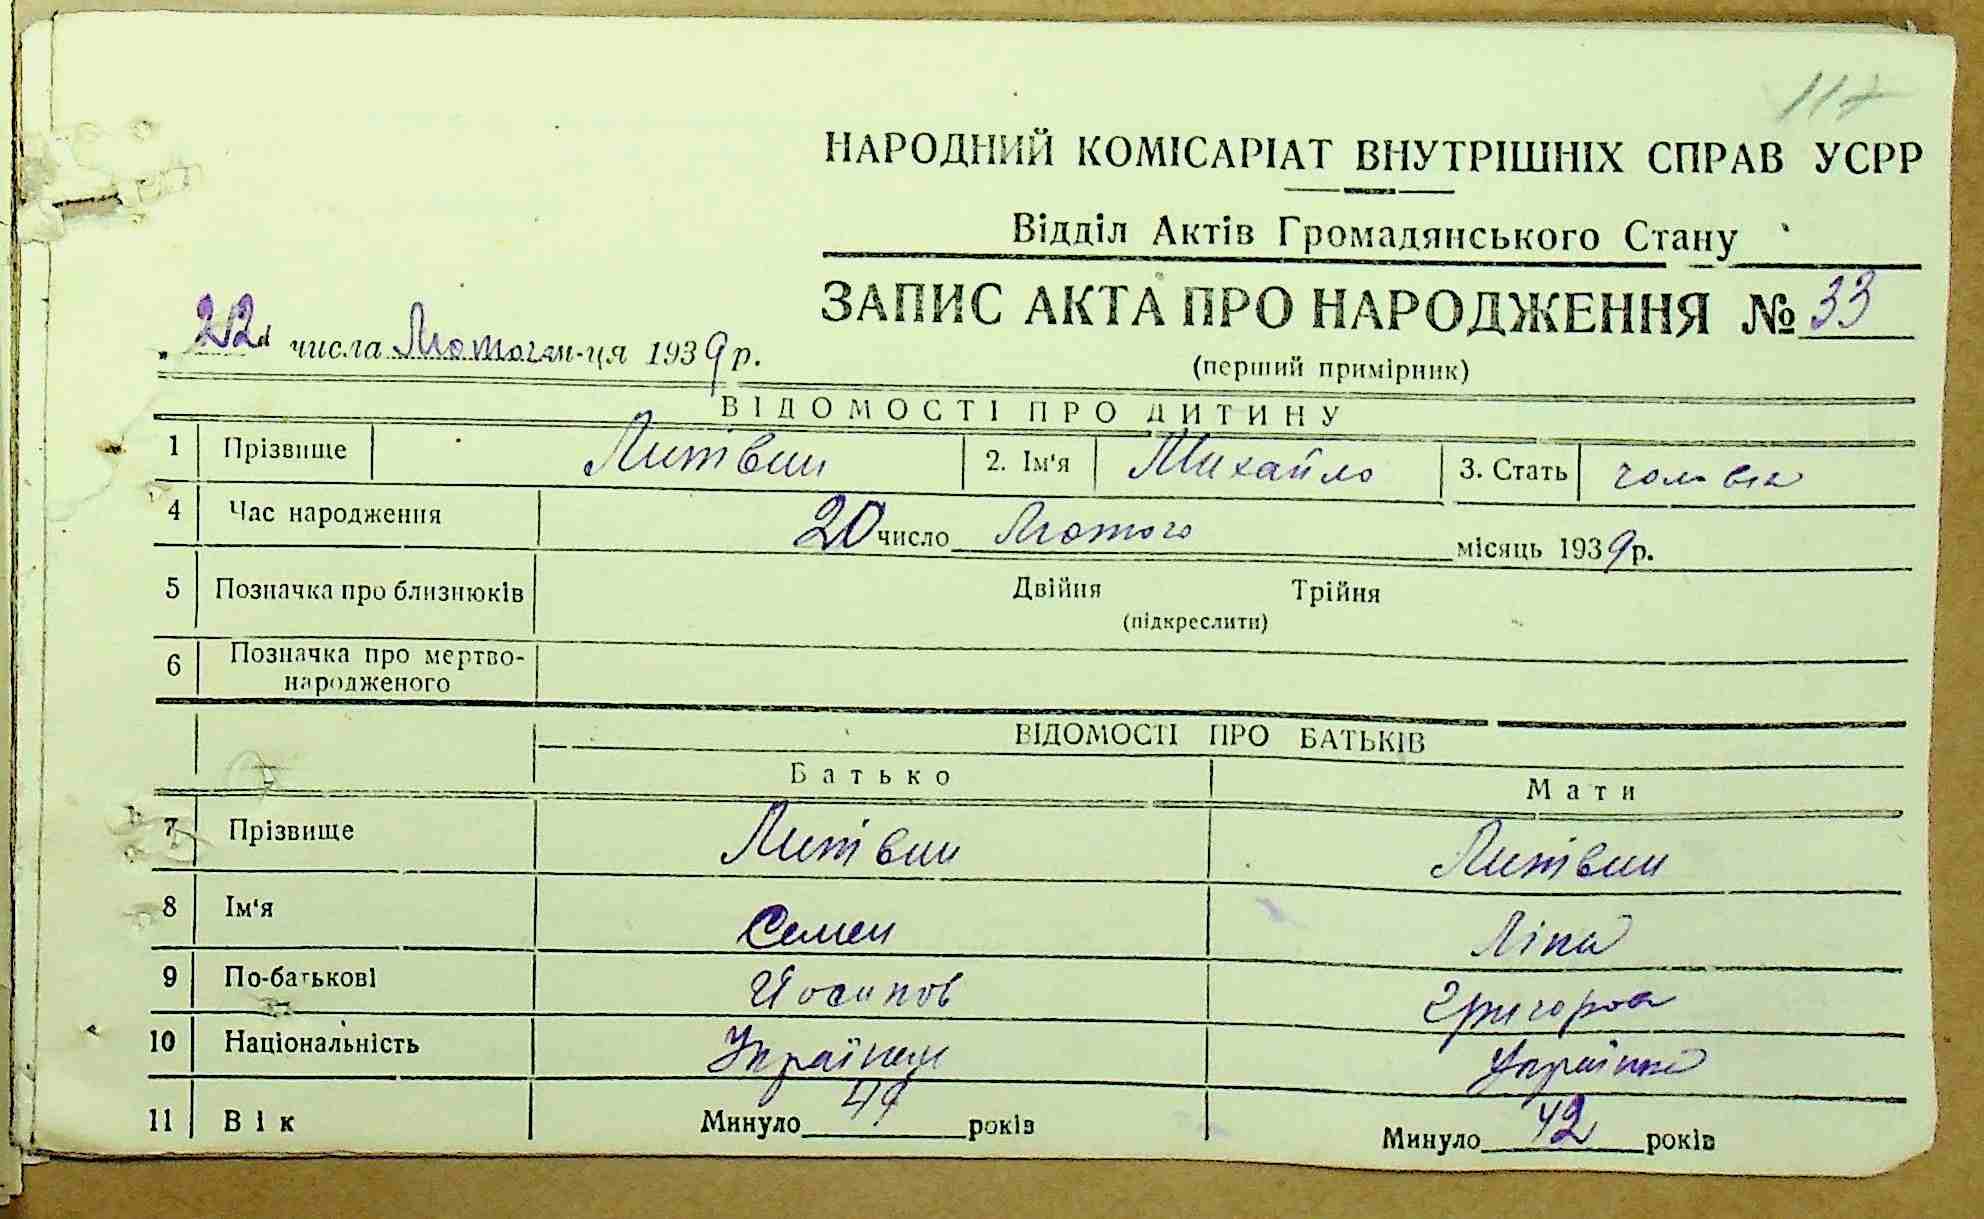 117
НАРОДНИЙ КОМІСАРІАТ ВНУТРІШНІХ СПРАВ УСРР
Відділ Актів Громадянського Стану
ЗАПИС АКТА ПРО НАРОДЖЕННЯ № 33
„22“ числа Лютого м-ця 1939 р.
(перший примірник)
ВІДОМОСТІ ПРО ДИТИНУ
1 Прізвище Литівин 2. Ім'я Михайло 3. Стать чоловік
4 Час народження 20 число Лютого місяць 1939 р.
5 Позначка про близнюків Двійня Трійня
(підкреслити)
6 Позначка про мертво-
народженого
ВІДОМОСТІ ПРО БАТЬКІВ
Батько Мати
7 Прізвище Литівин Литівин
8 Ім'я Семен Ліпа
9 По-батькові Йосипов Григоров
10 Національність Українец Українка
11 Вік Минуло 49 років Минуло 42 років